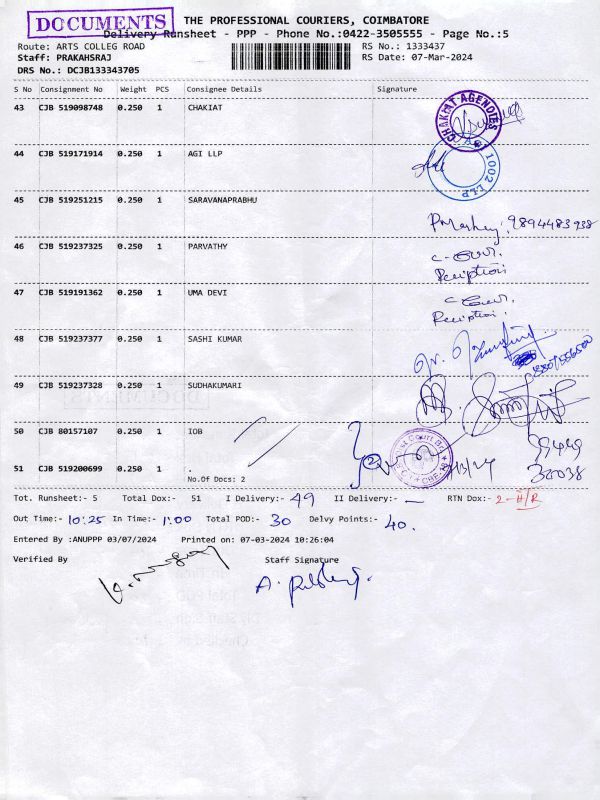 DOCUMENTS
THE PROFESSIONAL COURIERS, COIMBATORE
Delivery Runsheet - PPP - Phone No.:0422-3505555 - Page No.:5
Route: ARTS COLLEG ROAD
RS No.: 1333437
Staff: PRAKAHSRAJ
RS Date: 07-Mar-2024
DRS No.: DCJB133343705
S No Consignment No Weight PCS Consignee Details Signature
43 CJB 519098748 0.250 1 CHAKIAT
CHAKIAT AGENCIES
44 CJB 519171914 0.250 1 AGI LLP
1002 LLP
45 CJB 519251215 0.250 1 SARAVANAPRABHU
9894483938
46 CJB 519237325 0.250 1 PARVATHY
Reception
47 CJB 519191362 0.250 1 UMA DEVI
Reception.
48 CJB 519237377 0.250 1 SASHI KUMAR
49 CJB 519237328 0.250 1 SUDHAKUMARI
50 CJB 80157107 0.250 1 IOB
99449
51 CJB 519200699 0.250 1 .
32038
No.Of Docs: 2
Tot. Runsheet:- 5 Total Dox:- 51 I Delivery:- 49 II Delivery:- - RTN Dox:- 2-H/R
Out Time:- 10:25 In Time:- 1:00 Total POD:- 30 Delvy Points:- 40.
Entered By :ANUPPP 03/07/2024 Printed on: 07-03-2024 10:26:04
Verified By Staff Signature